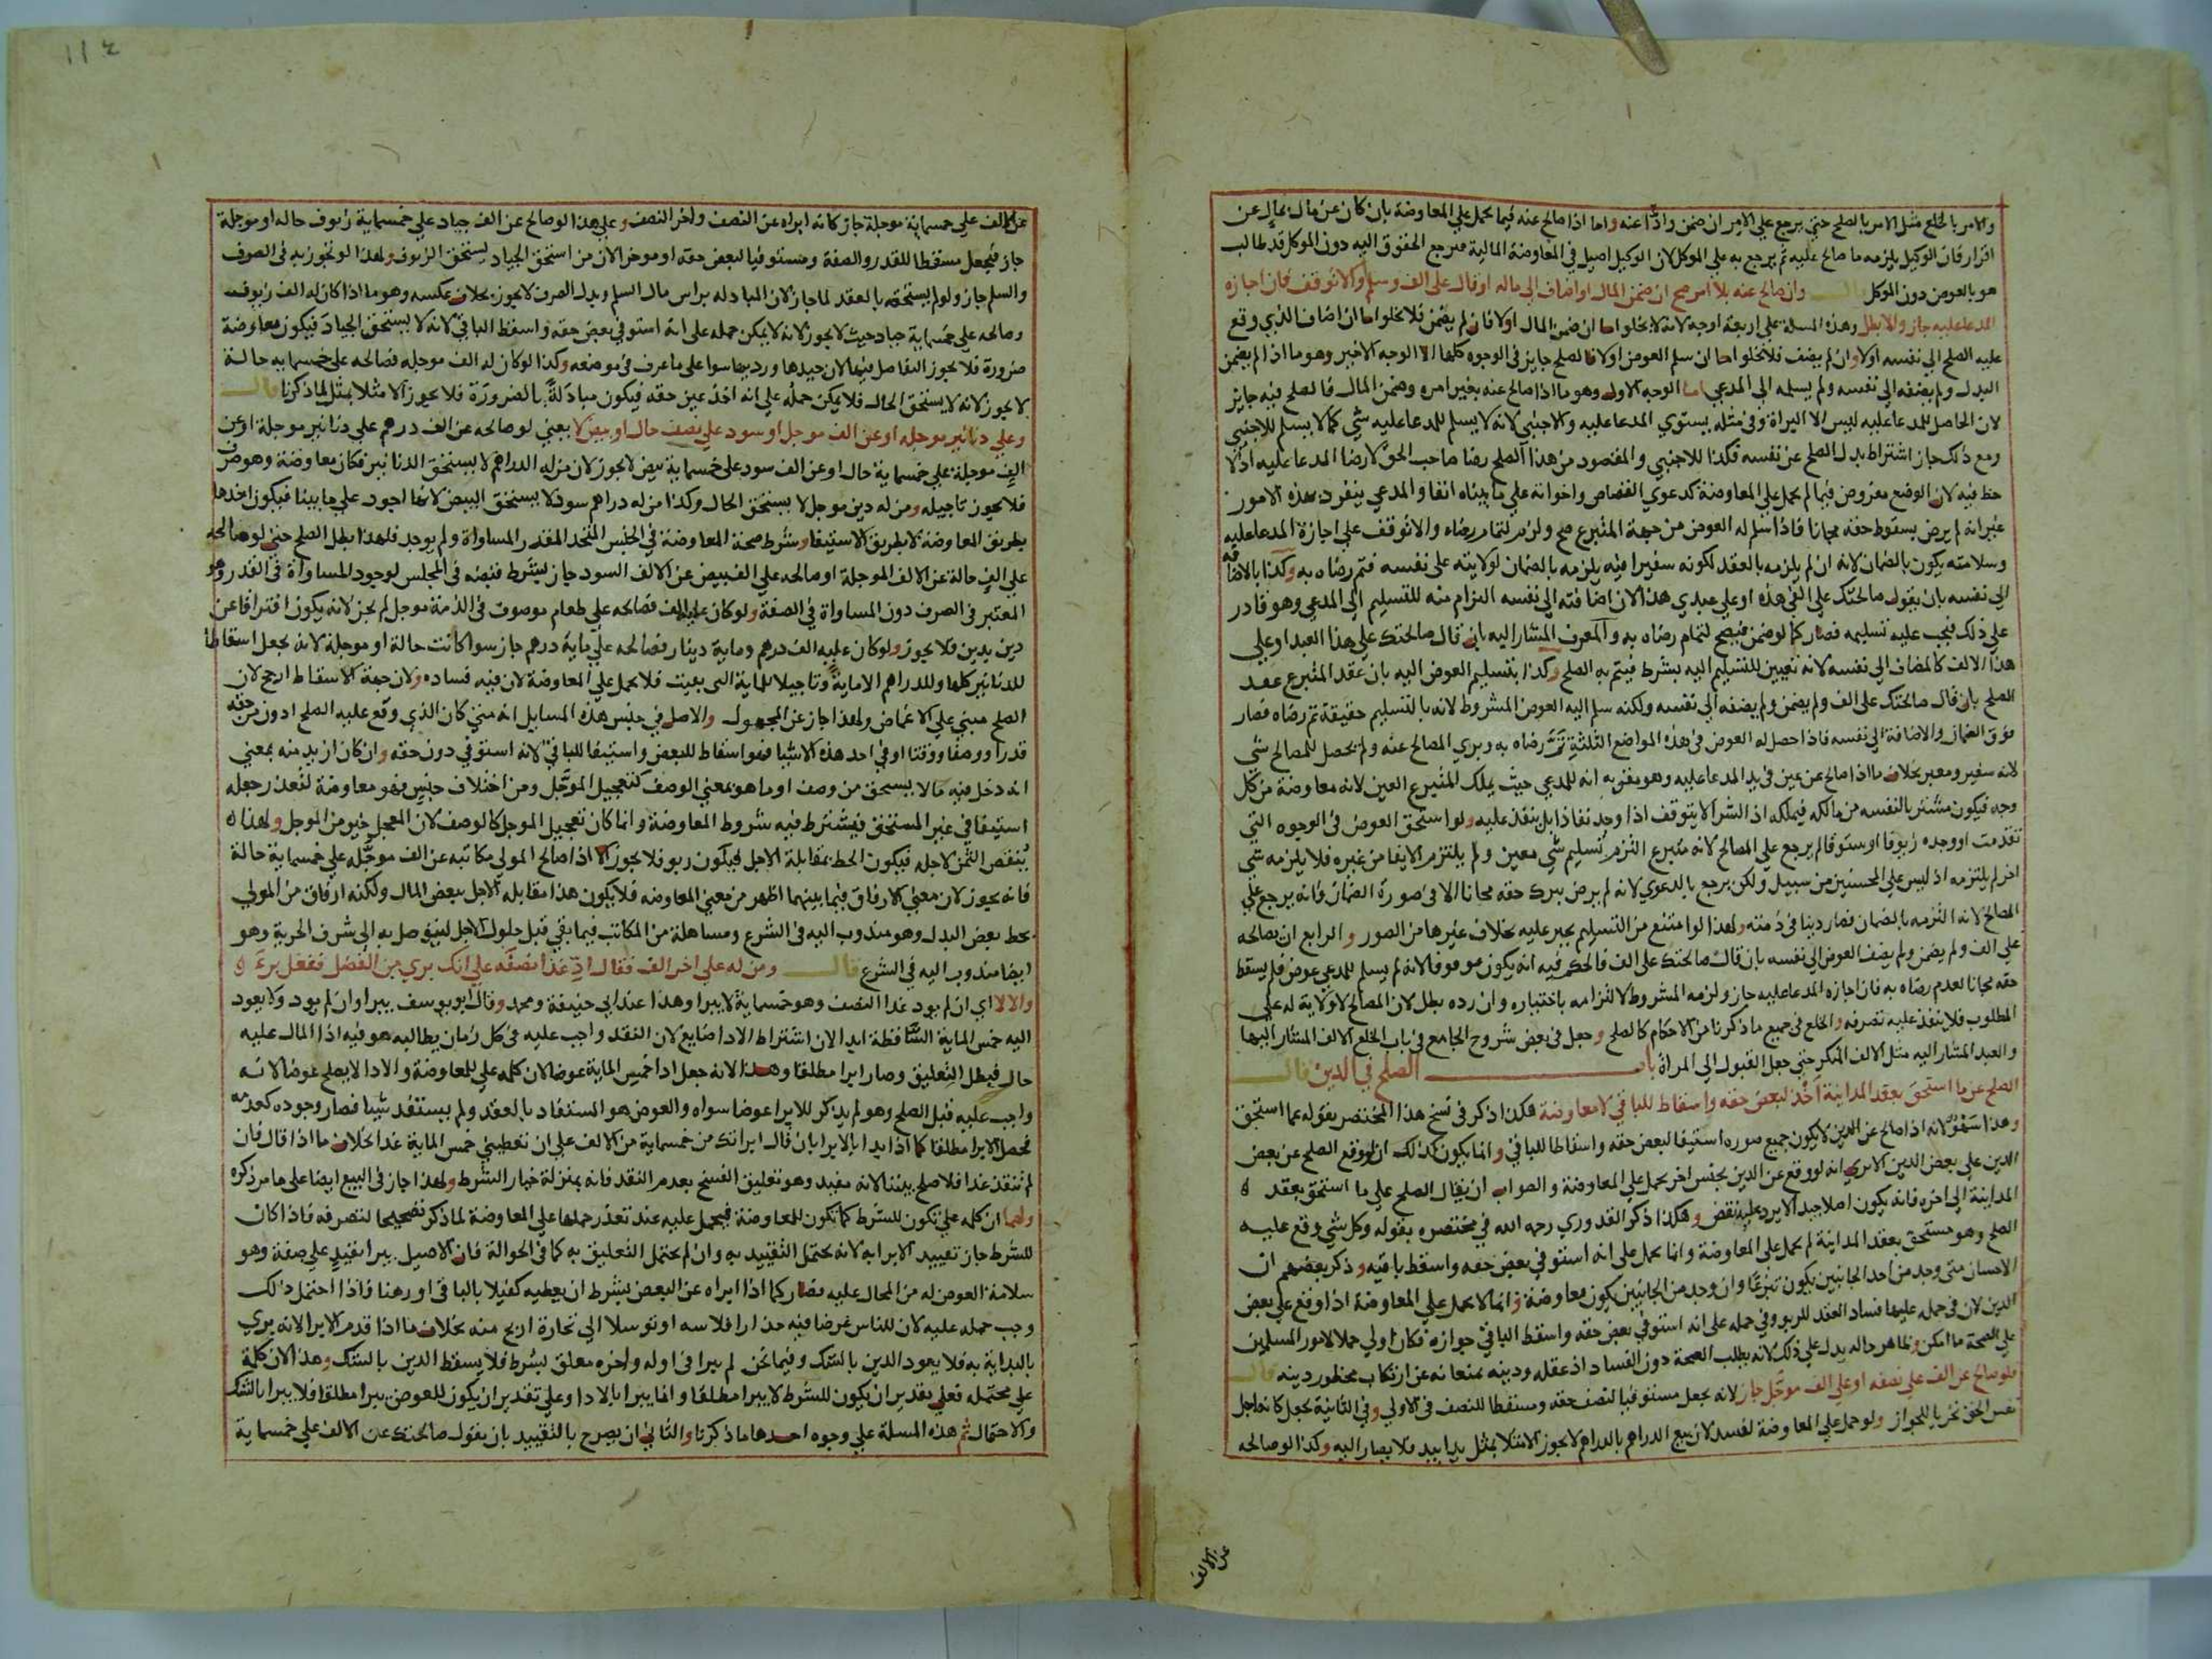 والامر بالخلع مثل الامر بالصلح حتي يرجع علي الامر ان ضمن وادا عنه واما اذا صالح عنه فيما يحمل علي المعاوضة بان كان عن مال بمال عن
اقرار فان الوكيل يلزمه ما صالح عليه ثم يرجع به علي الموكل لان الوكيل اصيل في المعاوضة المالية فيرجع الحقوق اليه دون الموكل قد طالب
هو بالعوض دون الموكل قال وان صالح عنه بلا امر صح ان ضمن المال او اضاف الي ماله او قال علي الف وسلم والا توقف فان اجازه
المدعا عليه جاز والا بطل وهذه المسلة علي اربعة اوجه لانه لا يخلوا اما ان ضمن المال اولا فان لم يضمن فلا يخلوا اما ان اضاف الذي وقع
عليه الصلح الي نفسه اولا وان لم يضف فلا يخلوا اما ان سلم العوض اولا فالصلح جايز في الوجوه كلها الا الوجه الاخير وهو ما اذا لم يضمن
البدل ولم يضفه الي نفسه ولم يسلمه الي المدعي اما الوجه الاول وهو ما اذا صالح عنه بغير امره وضمن المال فالصلح فيه جايز
لان الحاصل للمدعا عليه ليس الا البراة وفي مثله يستوي المدعا عليه والاجنبي لانه لا يسلم للمدعا عليه شي كما لا يسلم للاجنبي
ومع ذلك جاز اشتراط بدل الصلح عن نفسه فكذا للاجنبي والمقصود من هذا الصلح رضا صاحب الحق لا رضا المدعا عليه اذ لا
حظ فيه لان الوضع مفروض فيما لم يحمل علي المعاوضة كدعوي القصاص واخواته علي ما بيناه انفا والمدعي ينفرد بهذه الامور
غير انه لم يرض بسقوط حقه مجانا فاذا سلم له العوض من جهة المتبرع صح ولزم لتمام رضاه والا توقف علي اجازة المدعا عليه
وسلامته يكون بالضمان لانه ان لم يلزمه بالعقد لكونه سفيرا فيه يلزمه بالضمان لولايته علي نفسه فتم رضاه به وكذا بالاضافة
الي نفسه بان يقول صالحتك علي الفي هذه او علي عبدي هذا لان اضافته الي نفسه التزام منه للتسليم الي المدعي وهو قادر
علي ذلك فيجب عليه تسليمه فصار كما لو ضمن فيصح لتمام رضاه به والمعرف المشار اليه بان قال صالحتك علي هذا العبد او علي
هذا الالف كالمضاف الي نفسه لانه تعيين للتسليم اليه بشرط فيتم به الصلح وكذا بتسليم العوض اليه بان عقد المتبرع عقد
الصلح بان قال صالحتك علي الف ولم يضمن ولم يضفه الي نفسه ولكنه سلم اليه العوض المشروط لانه بالتسليم حقيقة تم رضاه فصار
فوق الضمان والاضافة الي نفسه فاذا حصل له العوض في هذه المواضع الثلثة تم رضاه به وبري المصالح عنه ولم يحصل للمصالح شي
لانه سفير ومعبر بخلاف ما اذا صالح عن عين في يد المدعا عليه وهو مقر به انه للمدعي حيث يملك المتبرع العين لانه معاوضة من كل
وجه فيكون مشتريا لنفسه من مالكه فيملكه اذ الشرا لا يتوقف اذا وجد نفاذا بل ينفذ عليه ولو استحق العوض في الوجوه التي
تقدمت او وجده زيوفا او ستوقا لم يرجع علي المصالح لانه متبرع التزم تسليم شي معين ولم يلتزم الايفا من غيره فلا يلزمه شي
اخر لم يلتزمه اذ ليس علي المحسنين من سبيل ولكن يرجع بالدعوي لانه لم يرض بترك حقه مجانا الا في صورة الضمان فانه يرجع علي
المصالح لانه التزمه بالضمان فصار دينا في ذمته ولهذا لو امتنع من التسليم يجبر عليه بخلاف غيرها من الصور والرابع ان يصالحه
علي الف ولم يضمن ولم يضف العوض الي نفسه بان قال صالحتك علي الف فالحكم فيه انه يكون موقوفا لانه لم يسلم للمدعي عوض فلم يسقط
حقه مجانا لعدم رضاه به فان اجازه المدعا عليه جاز ولزمه المشروط لالتزامه باختياره وان رده بطل لان المصالح لا ولاية له علي
المطلوب فلا ينفذ عليه تصرفه والخلع في جميع ما ذكرنا من الاحكام كالصلح وجعل في بعض شروح الجامع في باب الخلع الالف المشار اليها
والعبد المشار اليه مثل الالف المنكر حتي جعل القبول الي المراة باب الصلح في الدين قال
الصلح عن ما استحق بعقد المداينة اخذ لبعض حقه واسقاط للباقي لا معاوضة هكذا ذكر في نسخ هذا المختصر بقوله عما استحق
وهذا سهو لانه اذا صالح عن الدين لا يكون جميع صوره استيفا لبعض حقه واسقاطا للباقي وانما يكون كذلك ان لو وقع الصلح عن بعض
الدين علي بعض الدين الا تري انه لو وقع عن الدين بجنس اخر يحمل علي المعاوضة والصواب ان يقال الصلح علي ما استحق بعقد
المداينة الي اخره فانه يكون اصلا جيدا لا يرد عليه نقض وهكذا ذكر القدوري رحمه الله في مختصره بقوله وكل شي وقع عليه
الصلح وهو مستحق بعقد المداينة لم يحمل علي المعاوضة وانما يحمل علي انه استوفي بعض حقه واسقط باقيه وذكر بعضهم ان
الاحسان متي وجد من احد الجانبين يكون تبرعا وان وجد من الجانبين يكون معاوضة وانما لا يحمل علي المعاوضة اذا وقع علي بعض
الدين لان في حمله عليها فساد العقد للربو وفي حمله علي انه استوفي بعض حقه واسقط الباقي جوازه فكان اولي حملا لامور المسلمين
علي الصحة ما امكن وظاهر حاله يدل علي ذلك لانه يطلب الصحة دون الفساد اذ عقله ودينه يمنعانه عن ارتكاب محظور دينه قال
فلو صالح عن الف علي نصفه او علي الف موجل جاز لانه يجعل مستوفيا لنصف حقه ومسقطا للنصف في الاولي وفي الثانية يجعل كانه اجل
نفس الحق تحريا للجواز ولو حمل علي المعاوضة لفسد لان بيع الدراهم بالدراهم لا يجوز الا مثلا بمثل يدا بيد فلا يصار اليه وكذا لو صالحه
عن الالف
١١٤
عن الالف علي خمسماية موجلة جاز كانه ابراه عن النصف واخر النصف وعلي هذا لو صالح عن الف جياد علي خمسماية زيوف حاله او موجلة
جاز فيجعل مسقطا للقدر والصفة ومستوفيا لبعض حقه او موخرا لان من استحق الجياد يستحق الزيوف ولهذا لو تجوز به في الصرف
والسلم جاز ولو لم يستحقه بالعقد لما جاز لان المبادله براس مال السلم وبدل الصرف لا يجوز بخلاف عكسه وهو ما اذا كان له الف زيوف
وصالحه علي خمسماية جياد حيث لا يجوز لانه لا يمكن حمله علي انه استوفي بعض حقه واسقط الباقي لانه لا يستحق الجياد فيكون معاوضة
ضرورة فلا يجوز التفاضل فيها لان جيدها ورديها سوا علي ما عرف في موضعه وكذا لو كان له الف موجله فصالحه علي خمسماية حالة
لا يجوز لانه لا يستحق الحال فلا يمكن حمله علي انه اخذ عين حقه فيكون مبادلة بالضرورة فلا يجوز الا مثلا بمثل لما ذكرنا قال
وعلي دنانير موجله او عن الف موجل او سود علي نصف حال او بيض لا يعني لو صالحه عن الف درهم علي دنانير موجلة او عن
الف موجلة علي خمسماية حال او عن الف سود علي خمسماية بيض لا يجوز لان من له الدراهم لا يستحق الدنانير فكان معاوضة وهو صرف
فلا يجوز تاجيله ومن له دين موجل لا يستحق الحال وكذا من له دراهم سود لا يستحق البيض لانها اجود علي ما بينا فيكون اخذها
بطريق المعاوضة لا بطريق الاستيفا وشرط صحة المعاوضة في الجنس المتحد القدر المساواة ولم يوجد فلهذا بطل الصلح حتي لو صالحه
علي الف حالة عن الالف الموجلة او صالحه علي الف بيض عن الالف السود جاز بشرط قبضه في المجلس لوجود المساواة في القدر وهو
المعتبر في الصرف دون المساواة في الصفة ولو كان عليه الف فصالحه علي طعام موصوف في الذمة موجل لم يجز لانه يكون افتراقا عن
دين بدين فلا يجوز ولو كان عليه الف درهم وماية دينار فصالحه علي ماية درهم جاز سوا كانت حالة او موجلة لانه يجعل اسقاطا
للدنانير كلها وللدراهم الا ماية وتاجيلا للماية التي بقيت فلا يحمل علي المعاوضة لان فيه فساده ولان جهة الاسقاط ارجح لان
الصلح مبني علي الاغماض ولهذا جاز عن المجهول والاصل في جنس هذه المسايل انه متي كان الذي وقع عليه الصلح ادون من حقه
قدرا ووصفا ووقتا او في احد هذه الاشيا فهو اسقاط للبعض واستيفا للباقي لانه استوفي دون حقه وان كان ازيد منه بمعني
انه دخل فيه ما لا يستحق من وصف او ما هو بمعني الوصف كتعجيل الموجل ومن اختلاف جنس فهو معاوضة لتعذر جعله
استيفا في غير المستحق فيشترط فيه شروط المعاوضة وانما كان تعجيل الموجل كالوصف لان المعجل خير من الموجل ولهذا
ينقص الثمن لاجله فيكون الحط بمقابلة الاجل فيكون ربو فلا يجوز الا اذا صالح المولي مكاتبه عن الف موجله علي خمسماية حالة
فانه يجوز لان معني الارفاق فيما بينهما اظهر من معني المعاوضه فلا يكون هذا مقابله الاجل ببعض المال ولكنه ارفاق من المولي
بحط بعض البدل وهو مندوب اليه في الشرع ومساهلة من المكاتب فيما بقي قبل حلول الاجل ليتوصل به الي شرف الحرية وهو
ايضا مندوب اليه في الشرع قال ومن له علي اخر الف فقال اد غدا نصفه علي انك بري من الفضل ففعل بري
والا لا اي ان لم يود غدا النصف وهو خمسماية لا يبرا وهذا عند ابي حنيفة ومحمد وقال ابو يوسف يبرا وان لم يود ولا يعود
اليه خمس الماية الساقطة ابدا لان اشتراط الادا ضايع لان النقد واجب عليه في كل زمان يطالبه هو فيه اذا المال عليه
حال فبطل التعليق وصار ابرا مطلقا وهذا لانه جعل ادا خمس الماية عوضا لان كلمه علي للمعاوضة والادا لا يصلح عوضا لانه
واجب عليه قبل الصلح وهو لم يذكر للابرا عوضا سواه والعوض هو المستفاد بالعقد ولم يستفد شيا فصار وجوده كعدمه
فحصل الابرا مطلقا كما اذا بدا بالابرا بان قال ابراتك من خمسماية من الالف علي ان تعطيني خمس الماية غدا بخلاف ما اذا قال فان
لم تنقد غدا فلا صلح بيننا لانه مفيد وهو تعليق الفسخ بعدم النقد فانه بمنزلة خيار الشرط ولهذا جاز في البيع ايضا علي ما مر ذكره
ولهما ان كلمه علي تكون للشرط كما تكون للمعاوضة فيحمل عليه عند تعذر حملها علي المعاوضة لما ذكر تصحيحا لتصرفه فاذا كان
للشرط جاز تقييد الابرا به لانه يحتمل التقييد به وان لم يحتمل التعليق به كما في الحوالة فان الاصيل يبرا بقيد علي صفة وهو
سلامة العوض له من المحال عليه فصار كما اذا ابراه عن البعض بشرط ان يعطيه كفيلا بالباقي او رهنا فاذا احتمل ذلك
وجب حمله عليه لان للناس غرضا فيه حذارا فلاسه او توسلا الي تجارة اربح منه بخلاف ما اذا قدم الابرا لانه بري
بالبداية به فلا يعود الدين بالشك وفيما نحن لم يبرا في اوله واخره معلق بشرط فلا يسقط الدين بالشك وهذا لان كلمة
علي محتمله فعلي تقدير ان يكون للشرط لا يبرا مطلقا وانما يبرا بالادا وعلي تقدير ان يكون للعوض يبرا مطلقا فلا يبرا بالشك
والاحتمال ثم هذه المسلة علي وجوه احدها ما ذكرنا والثاني ان يصرح بالتقييد بان يقول صالحتك عن الالف علي خمسماية